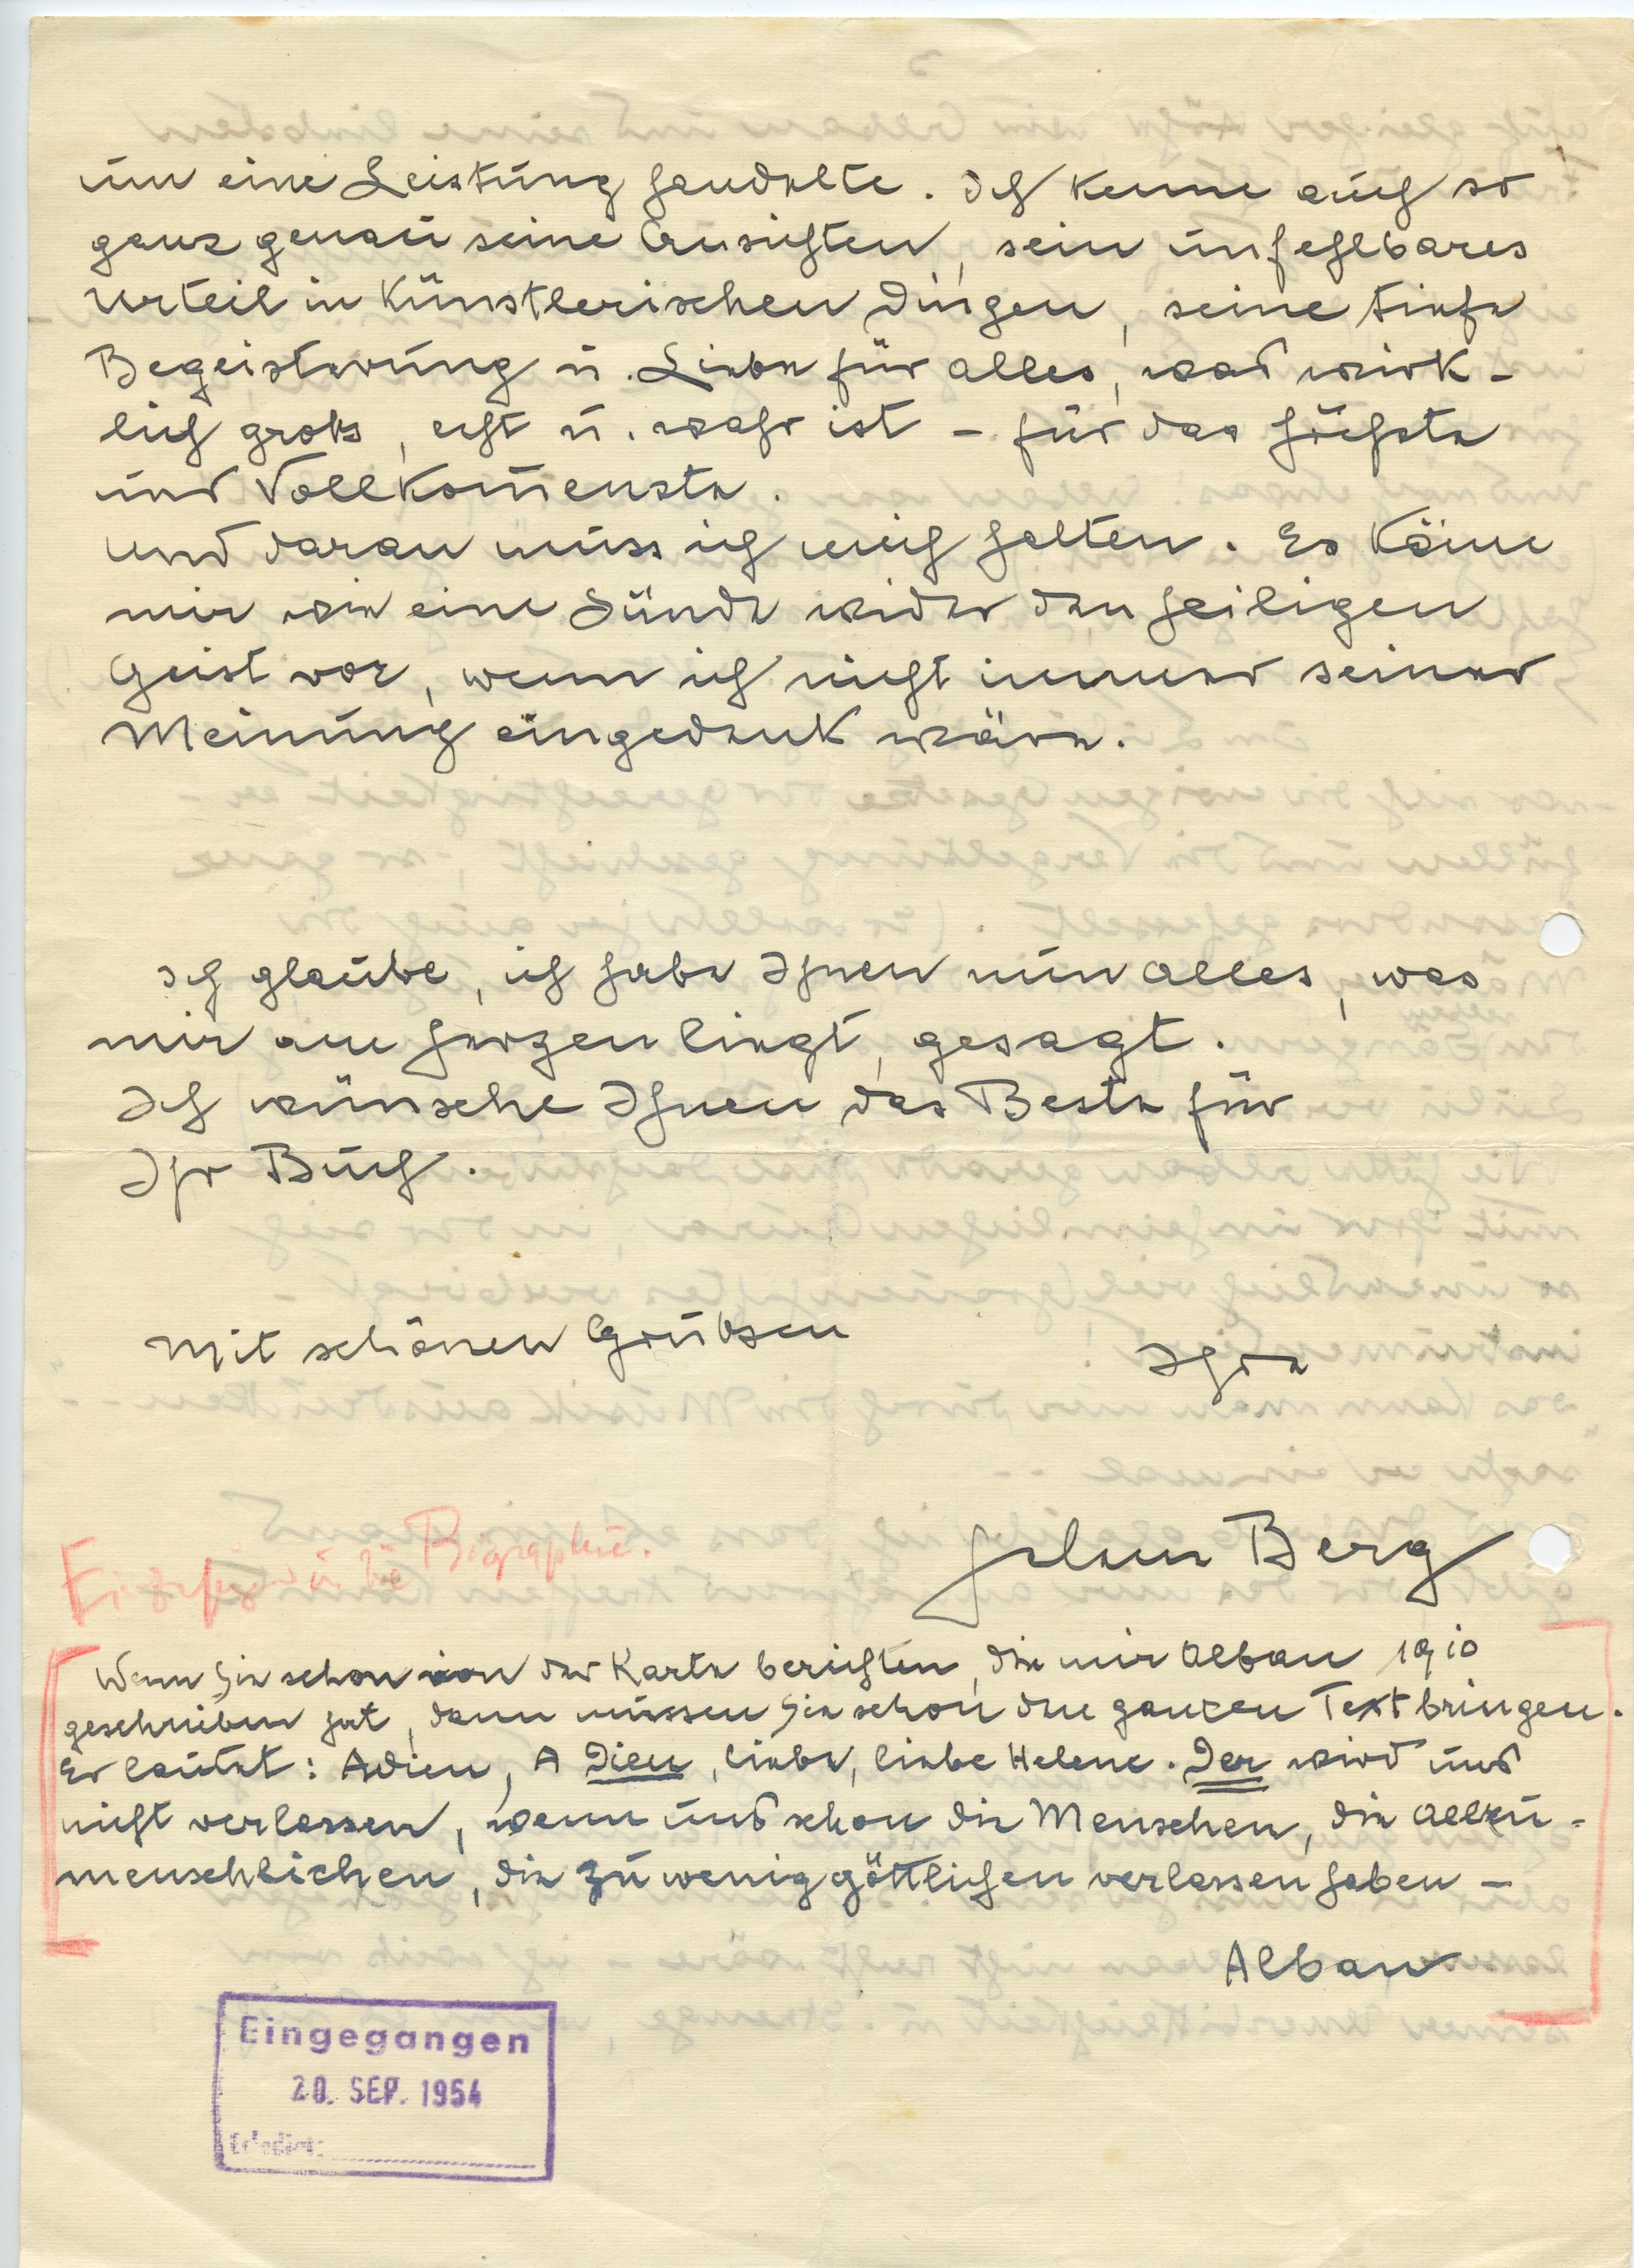 um eine Leistung handelte. Ich kenne auch so
ganz genau seine Ansichten, sein unfehlbares
Urteil in künstlerischen Dingen, seine tiefe
Begeisterung u. Liebe für alles, was wirk-
lich groß, echt u. wahr ist - für das Höchste
und Vollkom̅enste.
Und daran muss ich mich halten. Es käme
mir wie eine Sünde wider den heiligen
Geist vor, wenn ich nicht immer seiner
Meinung eingedenk wäre.
Ich glaube, ich habe Ihnen nun alles, was
mir am Herzen liegt, gesagt.
Ich wünsche Ihnen das Beste für
Ihr Buch.
Mit schönen Grüßen
Ihre
Helene Berg
Biographie.
Wenn Sie schon von der Karte berichten, die mir Alban 1910
geschrieben hat, dann müssen Sie schon den ganzen Text bringen.
Er lautet: Adieu, A Dieu, liebe, liebe Helene. Der wird uns
nicht verlassen, wenn uns schon die Menschen, die allzu-
menschlichen, die zu wenig göttlichen verlassen haben -
Alban
Eingegangen
20. SEP. 1954
Erledigt: